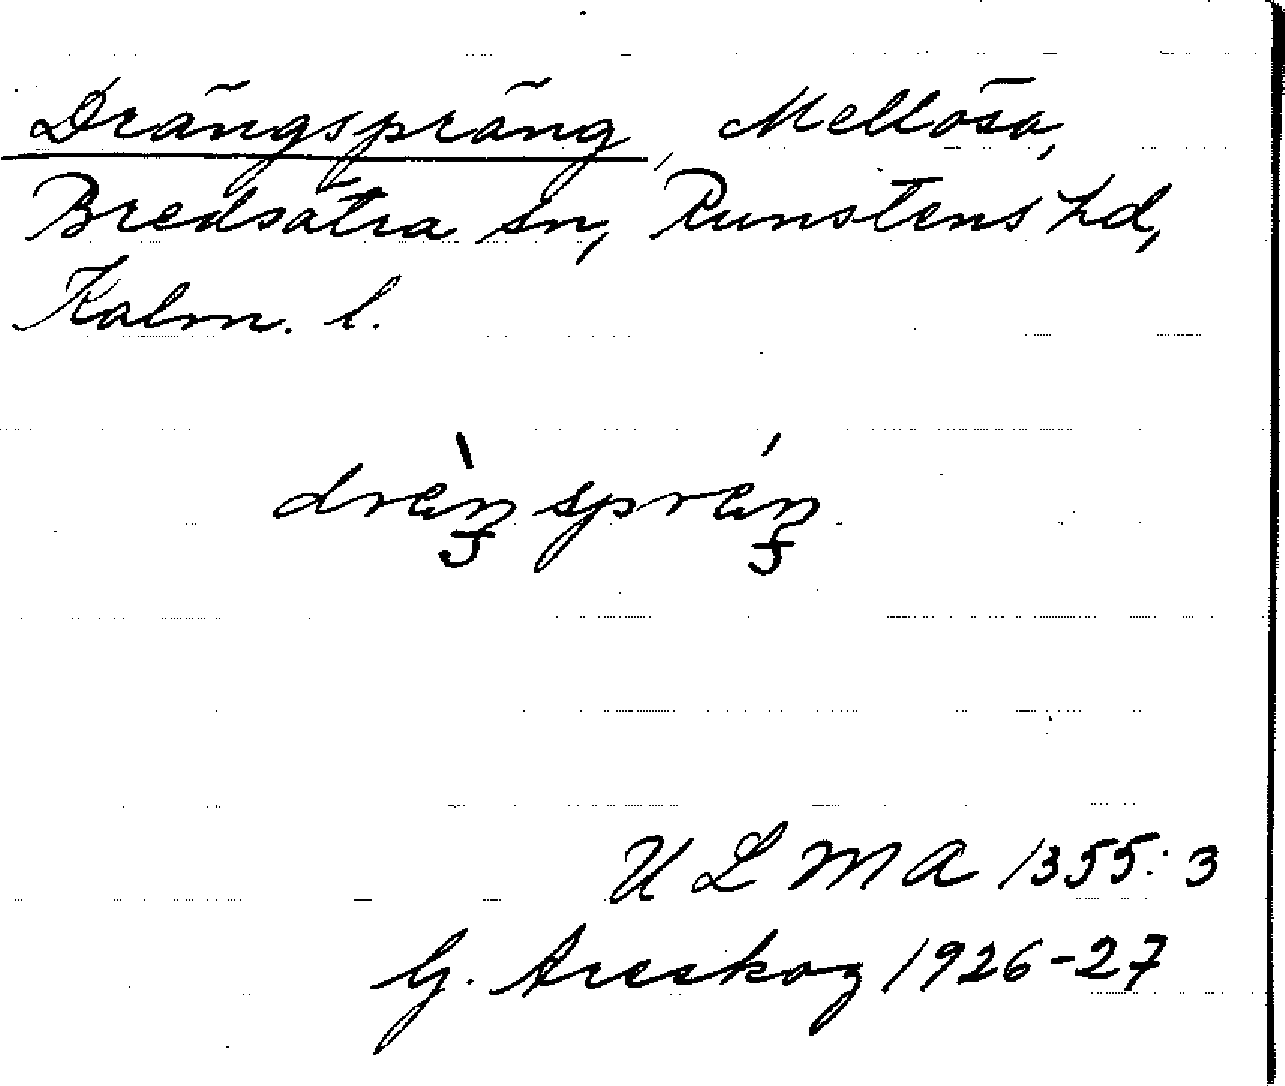 Drängspräng, Mellösa,
Bredsätra sn, Runstens hd,
Kalm. l.
dräŋ̀spräŋ́
ULMA 1355:3
G. Areskog 1926-27